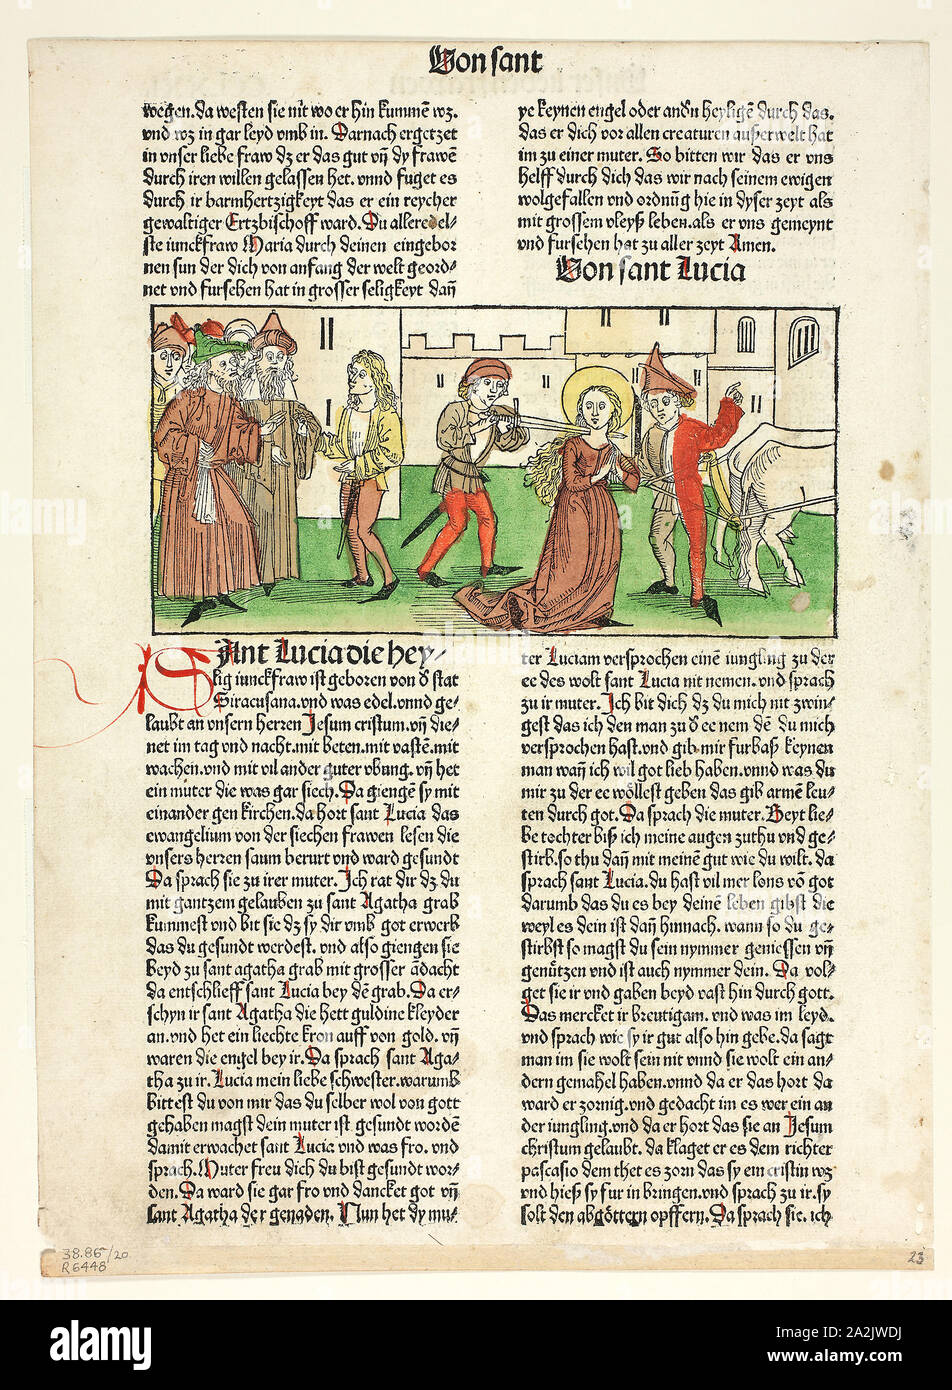 Von sant
wegen. da westen sie nit wo er hin kummē wz.
vnd wz in gar leyd vmb in. Darnach ergetzet
in vnser liebe fraw dz er das gut vn̄ dy frawē
durch iren willen gelassen het. vnnd fuget es
durch ir barmhertzigkeyt das er ein reycher
gewaltiger Ertzbischoff ward. Du alleredel⸗
ste iunckfraw Maria durch deinen eingebor
nen sun der dich von anfang der welt geord⸗
net vnd fursehen hat in grosser seligkeyt dan̄
ye keynen engel oder andn̄ heyligē durch das.
das er dich vor allen creaturen außerwelt hat
im zu einer muter. So bitten wir das er vns
helff durch dich das wir nach seinem ewigen
wolgefallen vnd ordnūg hie in dyser zeyt als
mit grossem vleyß leben. als er vns gemeynt
vnd fursehen hat zu aller zeyt Amen.
Von sant Lucia
SAnt Lucia die hey⸗
lig iunckfraw ist geboren von d̕ stat
Siracusana. vnd was edel. vnnd ge⸗
laubt an vnsern herren Jesum cristum. vn̄ die⸗
net im tag vnd nacht. mit beten. mit vastē. mit
wachen. vnd mit vil ander guter vbung. vn̄ het
ein muter die was gar siech. Da giengē sy mit
einander gen kirchen. da hort sant Lucia das
ewangelium von der siechen frawen lesen die
vnsers herren saum berurt vnd ward gesundt
Da sprach sie zu irer muter. Ich rat dir dz du
mit gantzem gelauben zu sant Agatha grab
kummest vnd bit sie dz sy dir vmb got erwerb
das du gesundt werdest. vnd also giengen sie
beyd zu sant agatha grab mit grosser ādacht
da entschlieff sant Lucia bey dē grab. Da er⸗
schyn ir sant Agatha die hett guldine kleyder
an. vnd het ein liechte kron auff von gold. vn̄
waren die engel bey ir. Da sprach sant Aga⸗
tha zu ir. Lucia mein liebe schwester. warumb
bittest du von mir das du selber wol von gott
gehaben magst dein muter ist gesundt wordē
damit erwachet sant Lucia vnd was fro. vnd
sprach. Muter freu dich du bist gesundt wor⸗
den. Da ward sie gar fro vnd dancket got vn̄
sant Agatha der genaden. Nun het dy mu⸗
ter Luciam versprochen einē iungling zu der
ee des wolt sant Lucia nit nemen. vnd sprach
zu ir muter. Ich bit dich dz du mich nit zwin⸗
gest das ich den man zu d̕ ee nem dē du mich
versprochen hast. vnd gib mir furbaß keynen
man wan̄ ich wil got lieb haben. vnnd was du
mir zu der ee wöllest geben das gib armē leu⸗
ten durch got. Da sprach die muter. Beyt lie⸗
be tochter biß ich meine augen zuthu vnd ge⸗
stirb. so thu dan̄ mit meinē gut wie du wilt. da
sprach sant Lucia. du hast vil mer lons vō got
darumb das du es bey deinē leben gibst die
weyl es dein ist dan̄ hinnach. wann so du ge⸗
stirbst so magst du sein nymmer geniessen vn̄
genützen vnd ist auch nymmer dein. Da vol⸗
get sie ir vnd gaben beyd vast hin durch gott.
Das mercket ir breutigam. vnd was im leyd.
vnd sprach wie sy ir gut also hin gebe. da sagt
man im sie wolt sein nit vnnd sie wolt ein an⸗
dern gemahel haben. vnnd da er das hort da
ward er zornig. vnd gedacht im es wer ein an
der iungling. vnd da er hort das sie an Jesum
christum gelaubt. da klaget er es dem richter
pascasio dem thet es zorn das sy ein cristin wz
vnd hieß sy fur in bringen. vnd sprach zu ir. sy
solt den abgöttern opffern. Da sprach sie. ich
38.86/20
R6448
23
alamy
Image ID: 2A2JWDJ
www.alamy.com